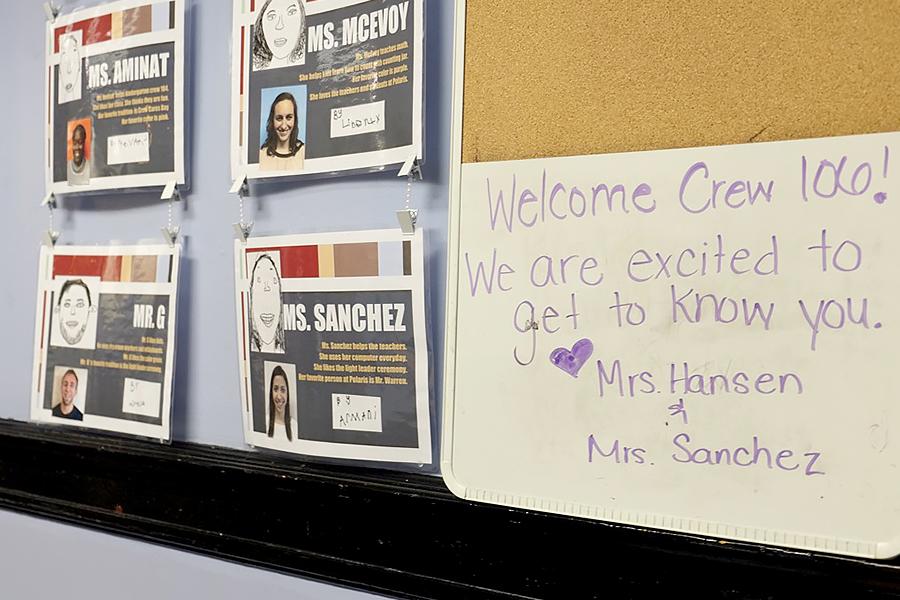 MS. AMINAT
Her favorite color is pink.
MS. MCEVOY
Ms. McEvoy teaches math.
She helps kids learn how to count with counting jar.
Her favorite color is purple.
She loves the teachers and students at Polaris.
BY
MR. G
BY
MS. SANCHEZ
Ms. Sanchez helps the teachers.
She uses her computer everyday.
She likes the light leader ceremony.
Her favorite person at Polaris is Mr. Warren.
BY
ARMANI
Welcome Crew 106!
We are excited to
get to know you.
Mrs. Hansen
&
Mrs. Sanchez